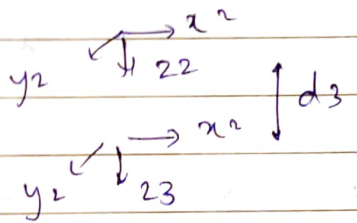 x2
y2 z2
d3
x2
y2 z3